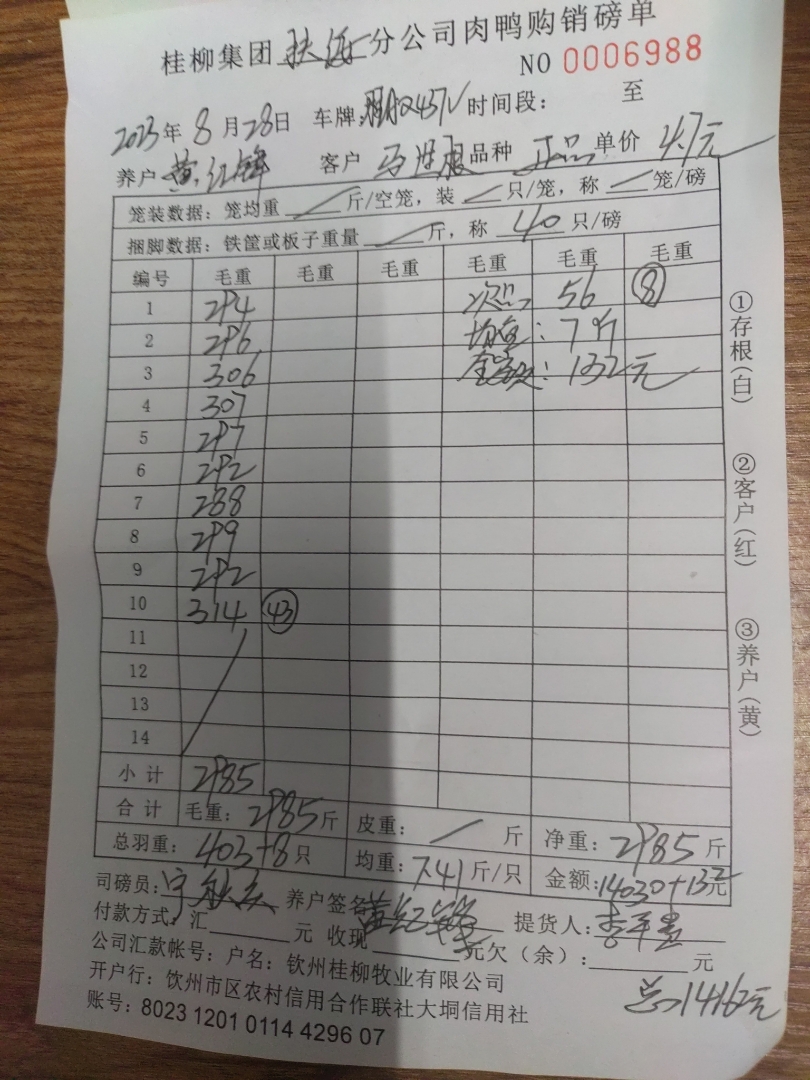 桂柳集团 扶海 分公司肉鸭购销磅单
NO 0006988
2023年8月28日 车牌 时间段： 至
养户 黄红锋 客户 品种 正品 单价 4.7元
笼装数据：笼均重 斤/空笼，装 只/笼，称 笼/磅
捆脚数据：铁筐或板子重量 斤，称 40 只/磅
编号 毛重 毛重 毛重 毛重 毛重 毛重
1 294 次品 56 ⑧
2 296 均重：7斤
3 306 金额：132元
4 307
5 297
6 292
7 288
8 299
9 292
10 314 ㊸
11
12
13
14
小计 2985
合计 毛重：2985斤 皮重： 斤 净重：2985斤
总羽重：403+8只 均重：7.41斤/只 金额：14030+132元
司磅员： 养户签名 黄红锋 提货人：
付款方式：汇 元 收现 元欠（余）： 元
公司汇款帐号：户名：钦州桂柳牧业有限公司
开户行：钦州市区农村信用合作联社大垌信用社
账号：8023 1201 0114 4296 07
总14162元
①存根（白）
②客户（红）
③养户（黄）